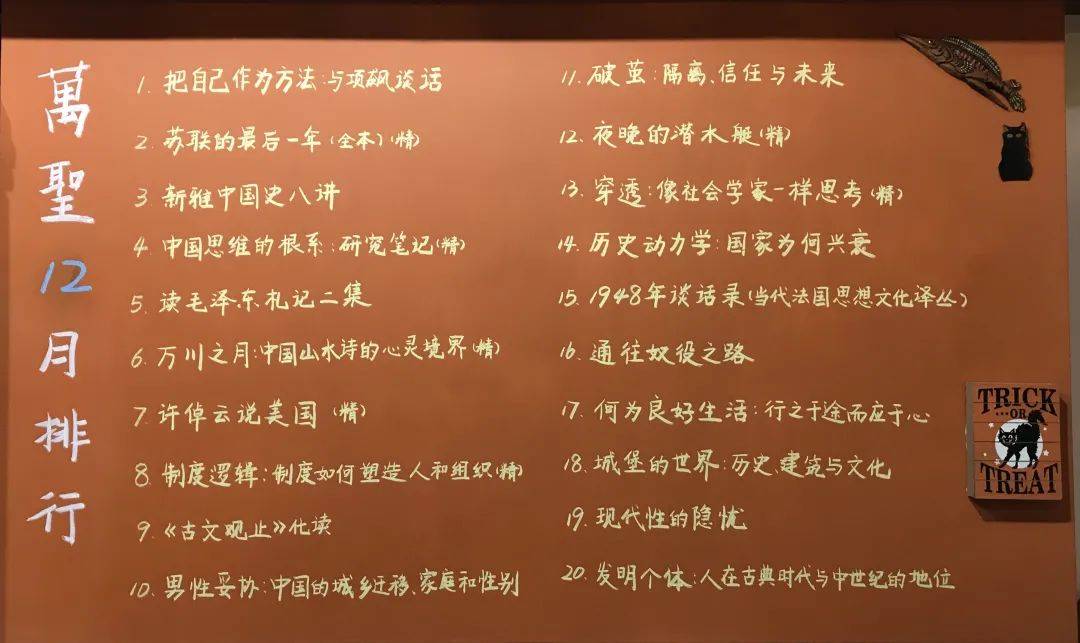 萬聖12月排行
1. 把自己作为方法:与项飙谈话
2. 苏联的最后一年(全本)(精)
3. 新雅中国史八讲
4. 中国思维的根系:研究笔记(精)
5. 读毛泽东札记二集
6. 万川之月:中国山水诗的心灵境界(精)
7. 许倬云说美国(精)
8. 制度逻辑:制度如何塑造人和组织(精)
9. 《古文观止》化读
10. 男性妥协:中国的城乡迁移、家庭和性别
11. 破茧:隔离、信任与未来
12. 夜晚的潜水艇(精)
13. 穿透:像社会学家一样思考(精)
14. 历史动力学:国家为何兴衰
15. 1948年谈话录(当代法国思想文化译丛)
16. 通往奴役之路
17. 何为良好生活:行之于途而应于心
18. 城堡的世界:历史、建筑与文化
19. 现代性的隐忧
20. 发明个体:人在古典时代与中世纪的地位
TRICK
OR
TREAT